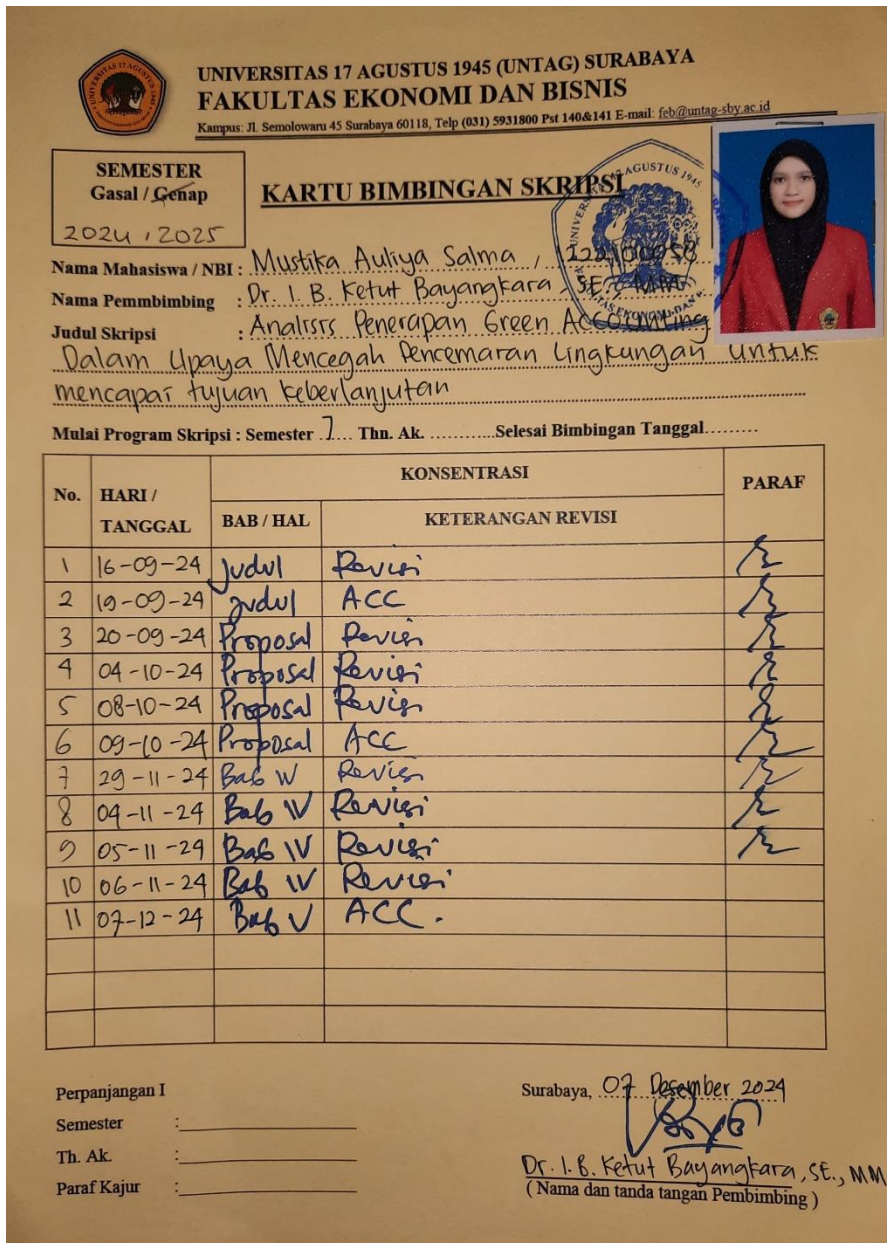 UNIVERSITAS 17 AGUSTUS 1945 (UNTAG) SURABAYA
FAKULTAS EKONOMI DAN BISNIS
Kampus: Jl. Semolowaru 45 Surabaya 60118, Telp (031) 5931800 Pst 140&141 E-mail: feb@untag-sby.ac.id
SEMESTER
Gasal / Genap
2024 / 2025
KARTU BIMBINGAN SKRIPSI
Nama Mahasiswa / NBI : Mustika Auliya Salma /
Nama Pemmbimbing : Dr. I. B. Ketut Bayangkara, SE., MM
Judul Skripsi : Analisis Penerapan Green Accounting
Dalam Upaya Mencegah Pencemaran Lingkungan untuk
mencapai tujuan keberlanjutan
Mulai Program Skripsi : Semester 7 Thn. Ak. ............Selesai Bimbingan Tanggal.........
No. HARI / TANGGAL KONSENTRASI PARAF
BAB / HAL KETERANGAN REVISI
1 16-09-24 Judul Revisi
2 19-09-24 Judul ACC
3 20-09-24 Proposal Revisi
4 04-10-24 Proposal Revisi
5 08-10-24 Proposal Revisi
6 09-10-24 Proposal ACC
7 29-11-24 Bab IV Revisi
8 04-11-24 Bab IV Revisi
9 05-11-24 Bab IV Revisi
10 06-11-24 Bab IV Revisi
11 07-12-24 Bab V ACC.
Perpanjangan I
Semester :
Th. Ak. :
Paraf Kajur :
Surabaya, 07 Desember 2024
Dr. I. B. Ketut Bayangkara, SE., MM
( Nama dan tanda tangan Pembimbing )